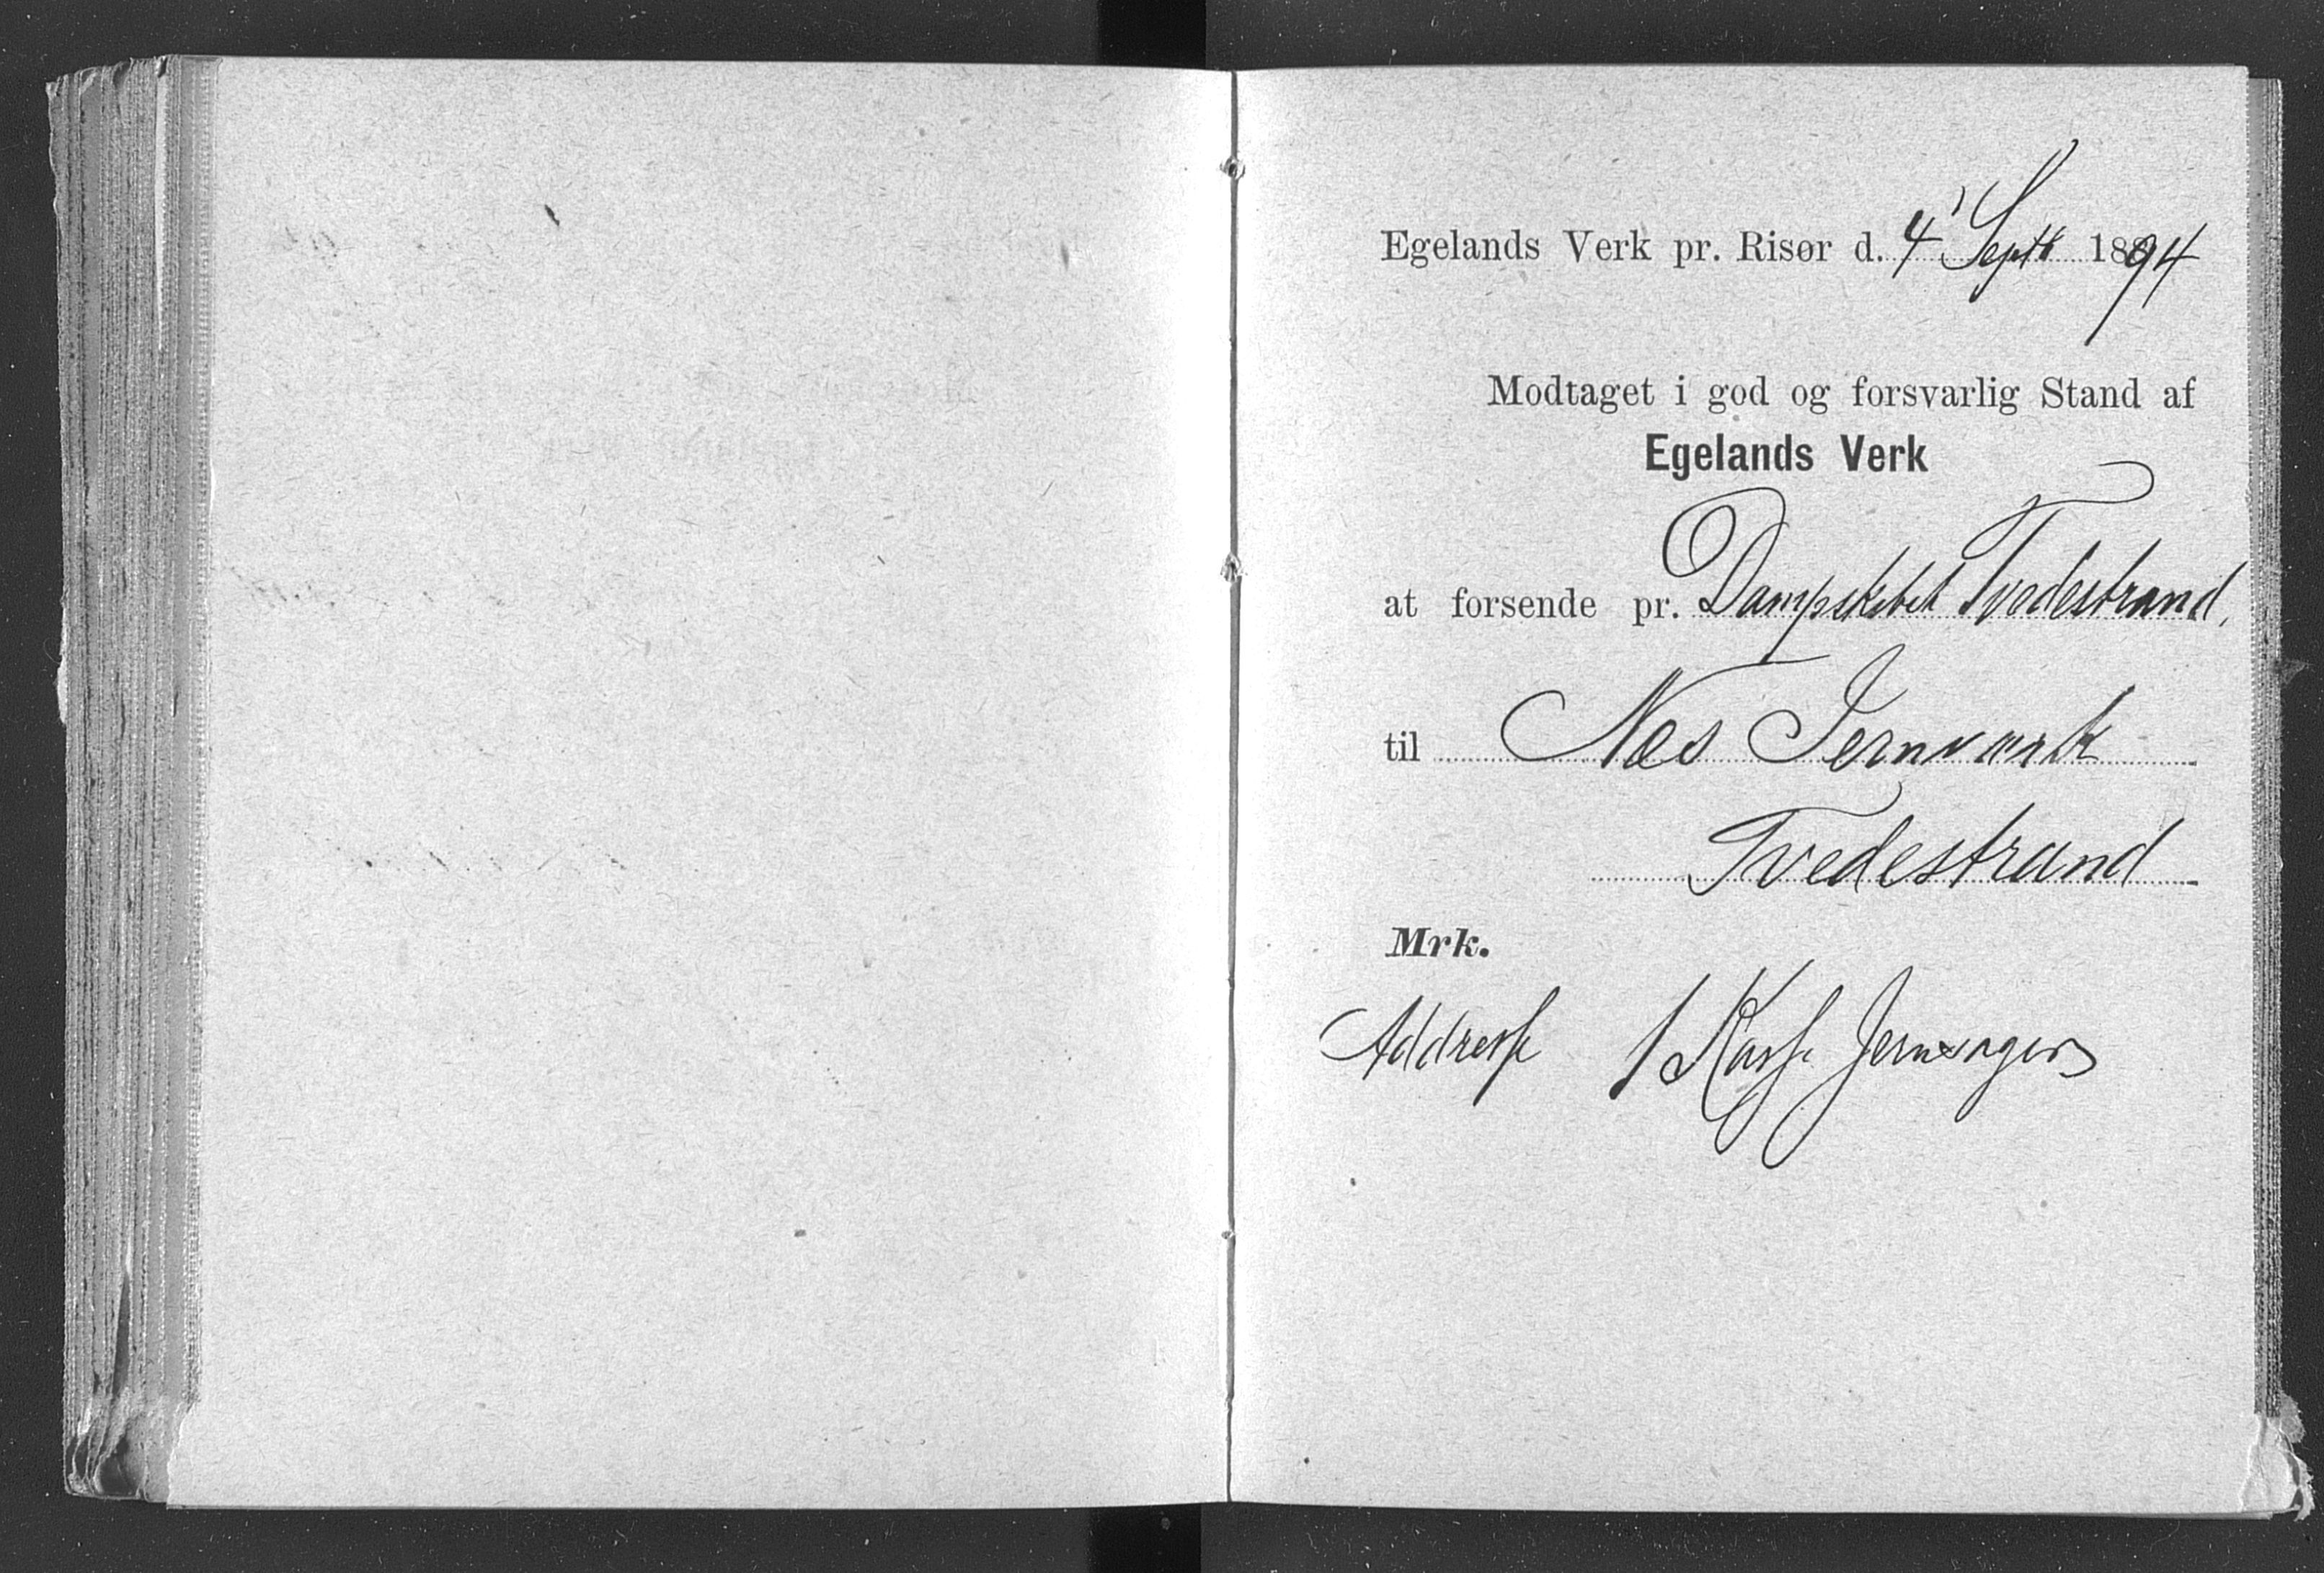 Egelands Verk pr. Risør d. 4' Septb 1894
Modtaget i god og forsvarlig Stand af
Egelands Verk
at forsende pr. Dampskibet Tvedestrand,
til Næs Jernværk
Tvedestrand
Mrk.
Addresse 1 Kasse